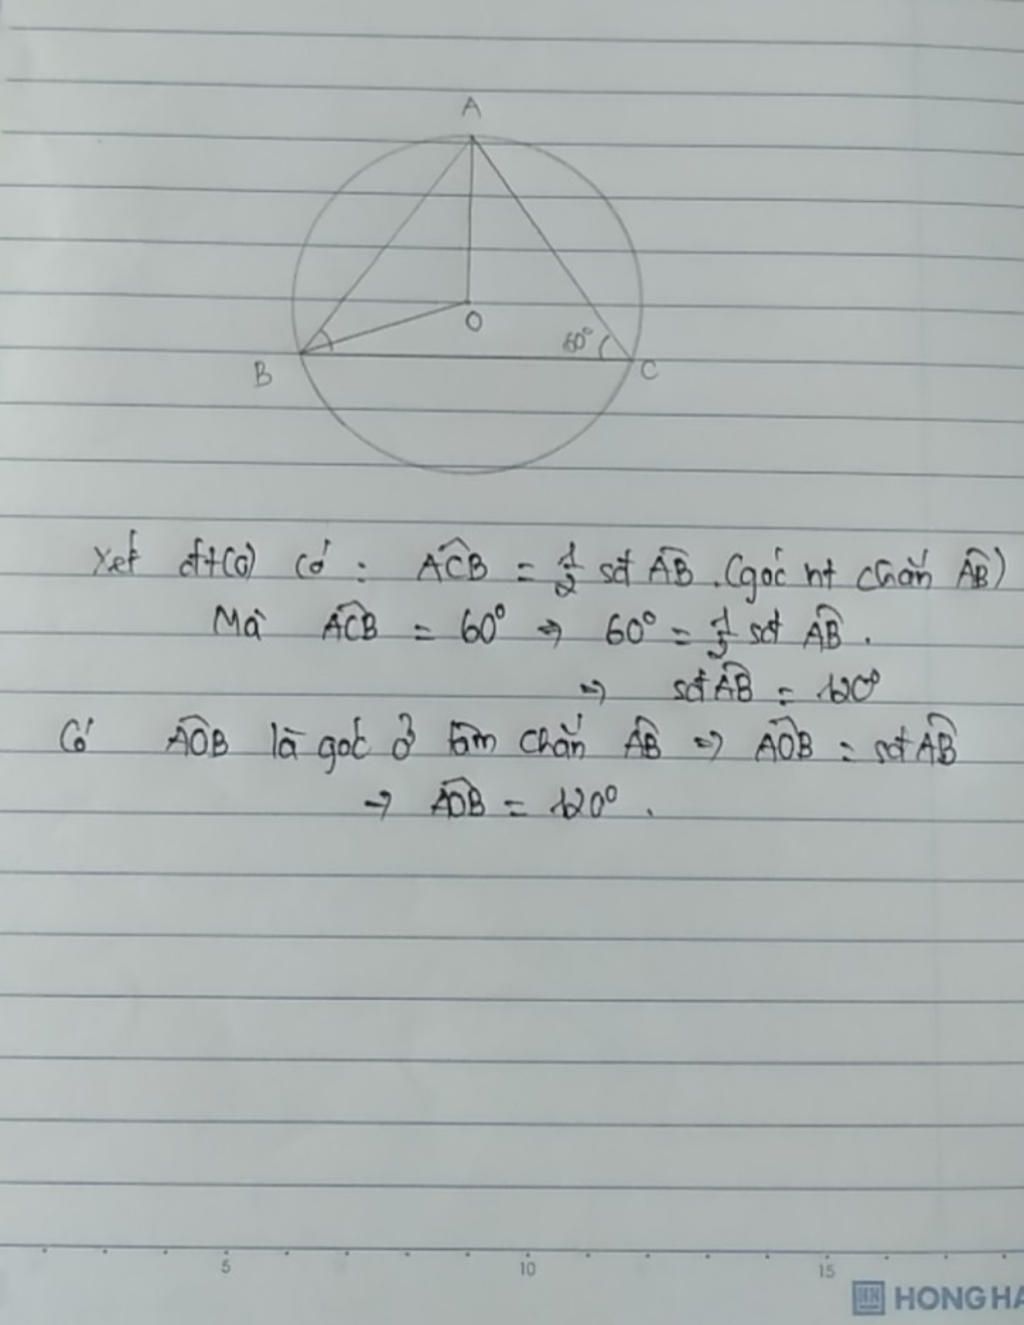 A
O
60°
B
C
Xét đt(O) có : ACB = 1/2 sđ AB. (góc nt chắn AB)
Mà ACB = 60° => 60° = 1/2 sđ AB.
=> sđ AB = 120°
Có AOB là góc ở tâm chắn AB => AOB = sđ AB
=> AOB = 120°.
5 10 15
HONG HA